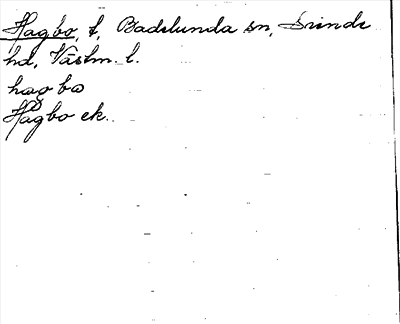 Hagbo, t, Badelunda sn, Siende
hd, Västm. l.
hagbo
Hagbo ek.